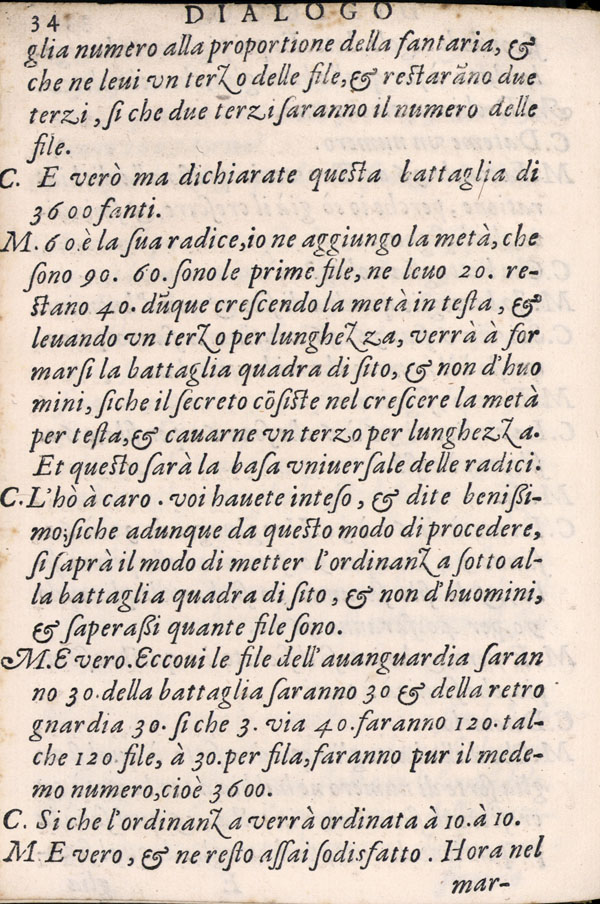 34 DIALOGO
glia numero alla proportione della fantaria, &
che ne leui vn terzo delle file, & restarãno due
terzi, si che due terzi saranno il numero delle
file.
C. E verò ma dichiarate questa battaglia di
3600 fanti.
M. 60. è la sua radice, io ne aggiungo la metà, che
sono 90. 60. sono le prime file, ne leuo 20. re-
stano 40. dũque crescendo la metà in testa, &
leuando vn terzo per lunghezza, verrà à for
marsi la battaglia quadra di sito, & non d'huo
mini, siche il secreto cõsiste nel crescere la metà
per testa, & cauarne vn terzo per lunghezza.
Et questo sarà la basa vniuersale delle radici.
C. L'hò à caro. voi hauete inteso, & dite benißi-
mo; siche adunque da questo modo di procedere,
si saprà il modo di metter l'ordinanza sotto al-
la battaglia quadra di sito, & non d'huomini,
& saperaßi quante file sono.
M. E vero. Eccoui le file dell'auanguardia saran
no 30. della battaglia saranno 30 & della retro
gnardia 30. si che 3. via 40. faranno 120. tal-
che 120. file, à 30. per fila, faranno pur il mede-
mo numero, cioè 3600.
C. Si che l'ordinanza verrà ordinata à 10. à 10.
M. E vero, & ne resto assai sodisfatto. Hora nel
mar-